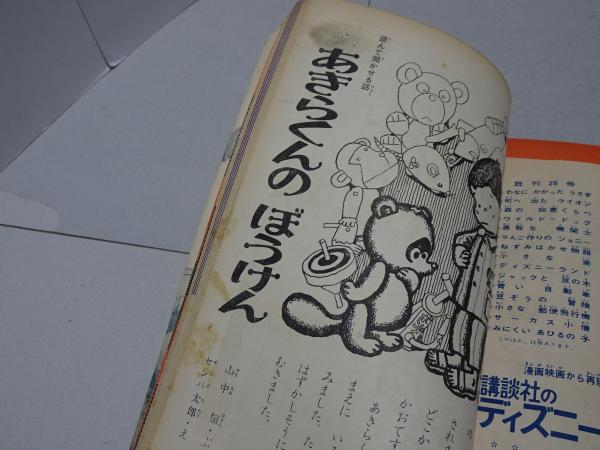 読んで聞かせる話
あきらくんのぼうけん
山中 恒・ぶん
センバ太郎・え
むきました。
はずかしそうに
みました。た
まえに い
あきらし
かおです
どこか
され
の
既刊26冊
わなに かかった うさぎ
町へ 出た ライオン
森の 知恵くらべ
ワイルド・ドック
勇敢な 機関士
りんご作りの ジョニー
ねずみはかせ物語
小さな 家
ディズニーランド
ジャックと 豆の木
青い 自動車
豆ぞうの 冒険
小さな 郵便飛行機
サーカス小僧
みにくい あひるの 子
漫画映画から再現
講談社の
ディズニー